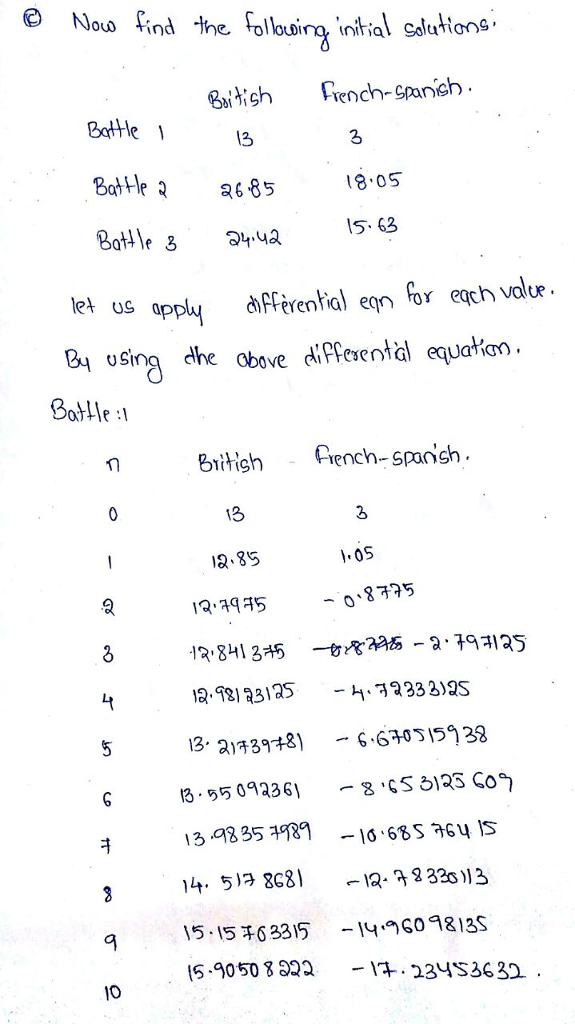 © Now find the following initial solutions.
British French-spanish.
Battle 1 13 3
Battle 2 26.85 18.05
Battle 3 24.42 15.63
let us apply differential eqn for each value.
By using the above differential equation.
Battle :1
n British French-spanish.
0 13 3
1 12.85 1.05
2 12.7975 -0.8775
3 12.841375 -2.797125
4 12.98123125 -4.72333125
5 13.21739781 -6.670515938
6 13.55092361 -8.653125609
7 13.98357989 -10.68576415
8 14.5178681 -12.78330113
9 15.15763315 -14.96098135
10 15.90508222 -17.23453632.